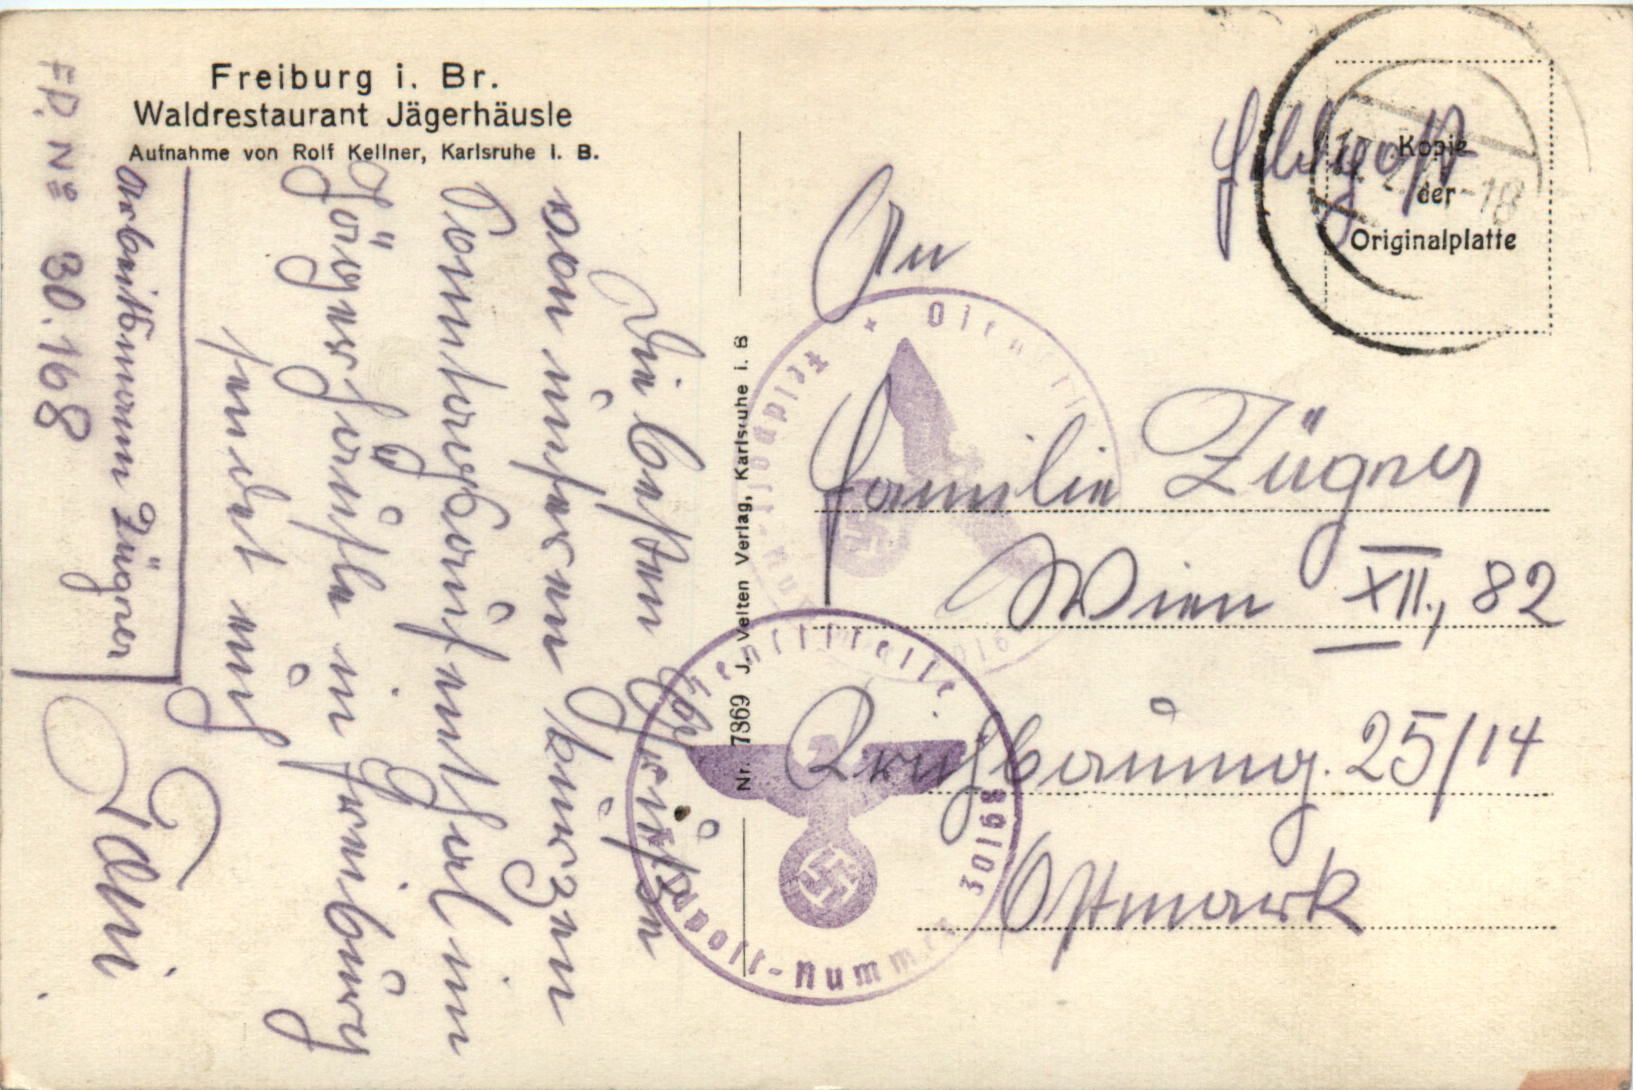 Freiburg i. Br.
Waldrestaurant Jägerhäusle
Aufnahme von Rolf Kellner, Karlsruhe i. B.
FP. № 30.168
Arbeitsmann Zügner
Die besten Grüße
von unserem kurzen
Sonntagsaufenthal im
Jägerhäusle in Freiburg
sendet euch
Nr. 7869 J. Velten Verlag, Karlsruhe i. B
Feldpost
Kopie
der
Originalplatte
An
Familie Zügner
Wien XII., 82
25/14
Ostmark
Dienststelle
Feldpost-Nummer 30168